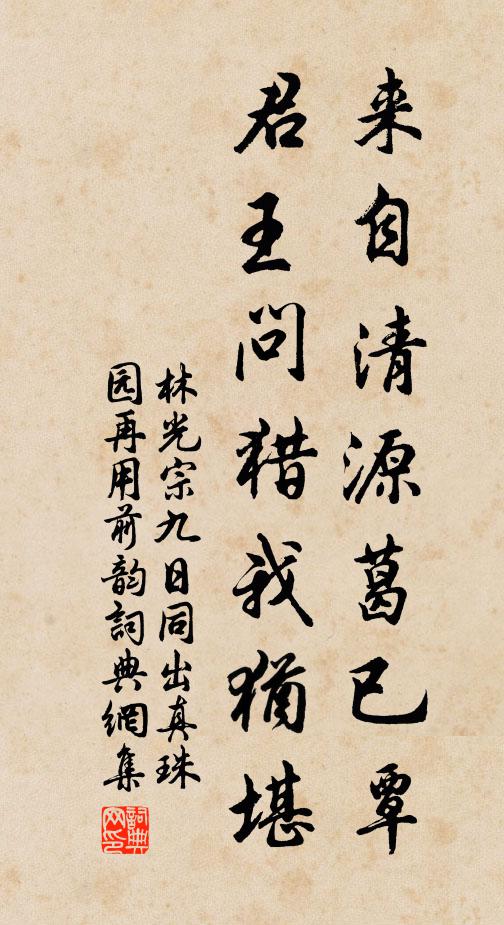 来自清源葛已覃
君王问猎我犹堪
林光宗九日同出真珠
园再用前韵詞典網集
詞典网印